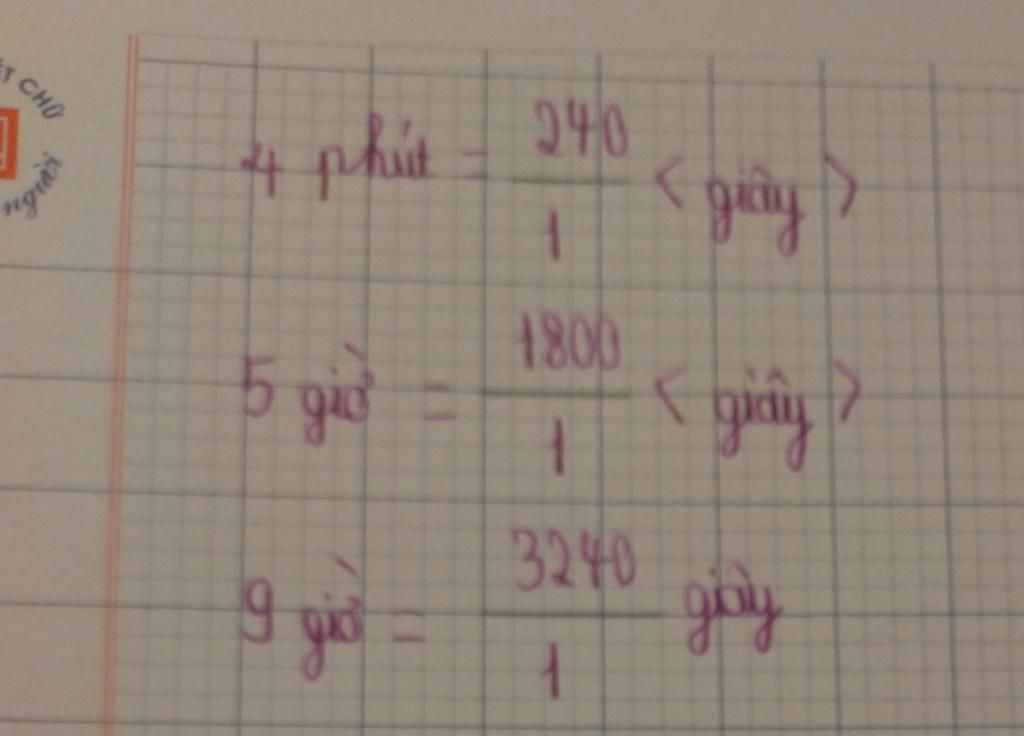 ẾT CHỮ
người.
4 phút = 240/1 < giây >
5 giờ = 1800/1 < giây >
9 giờ = 3240/1 giây